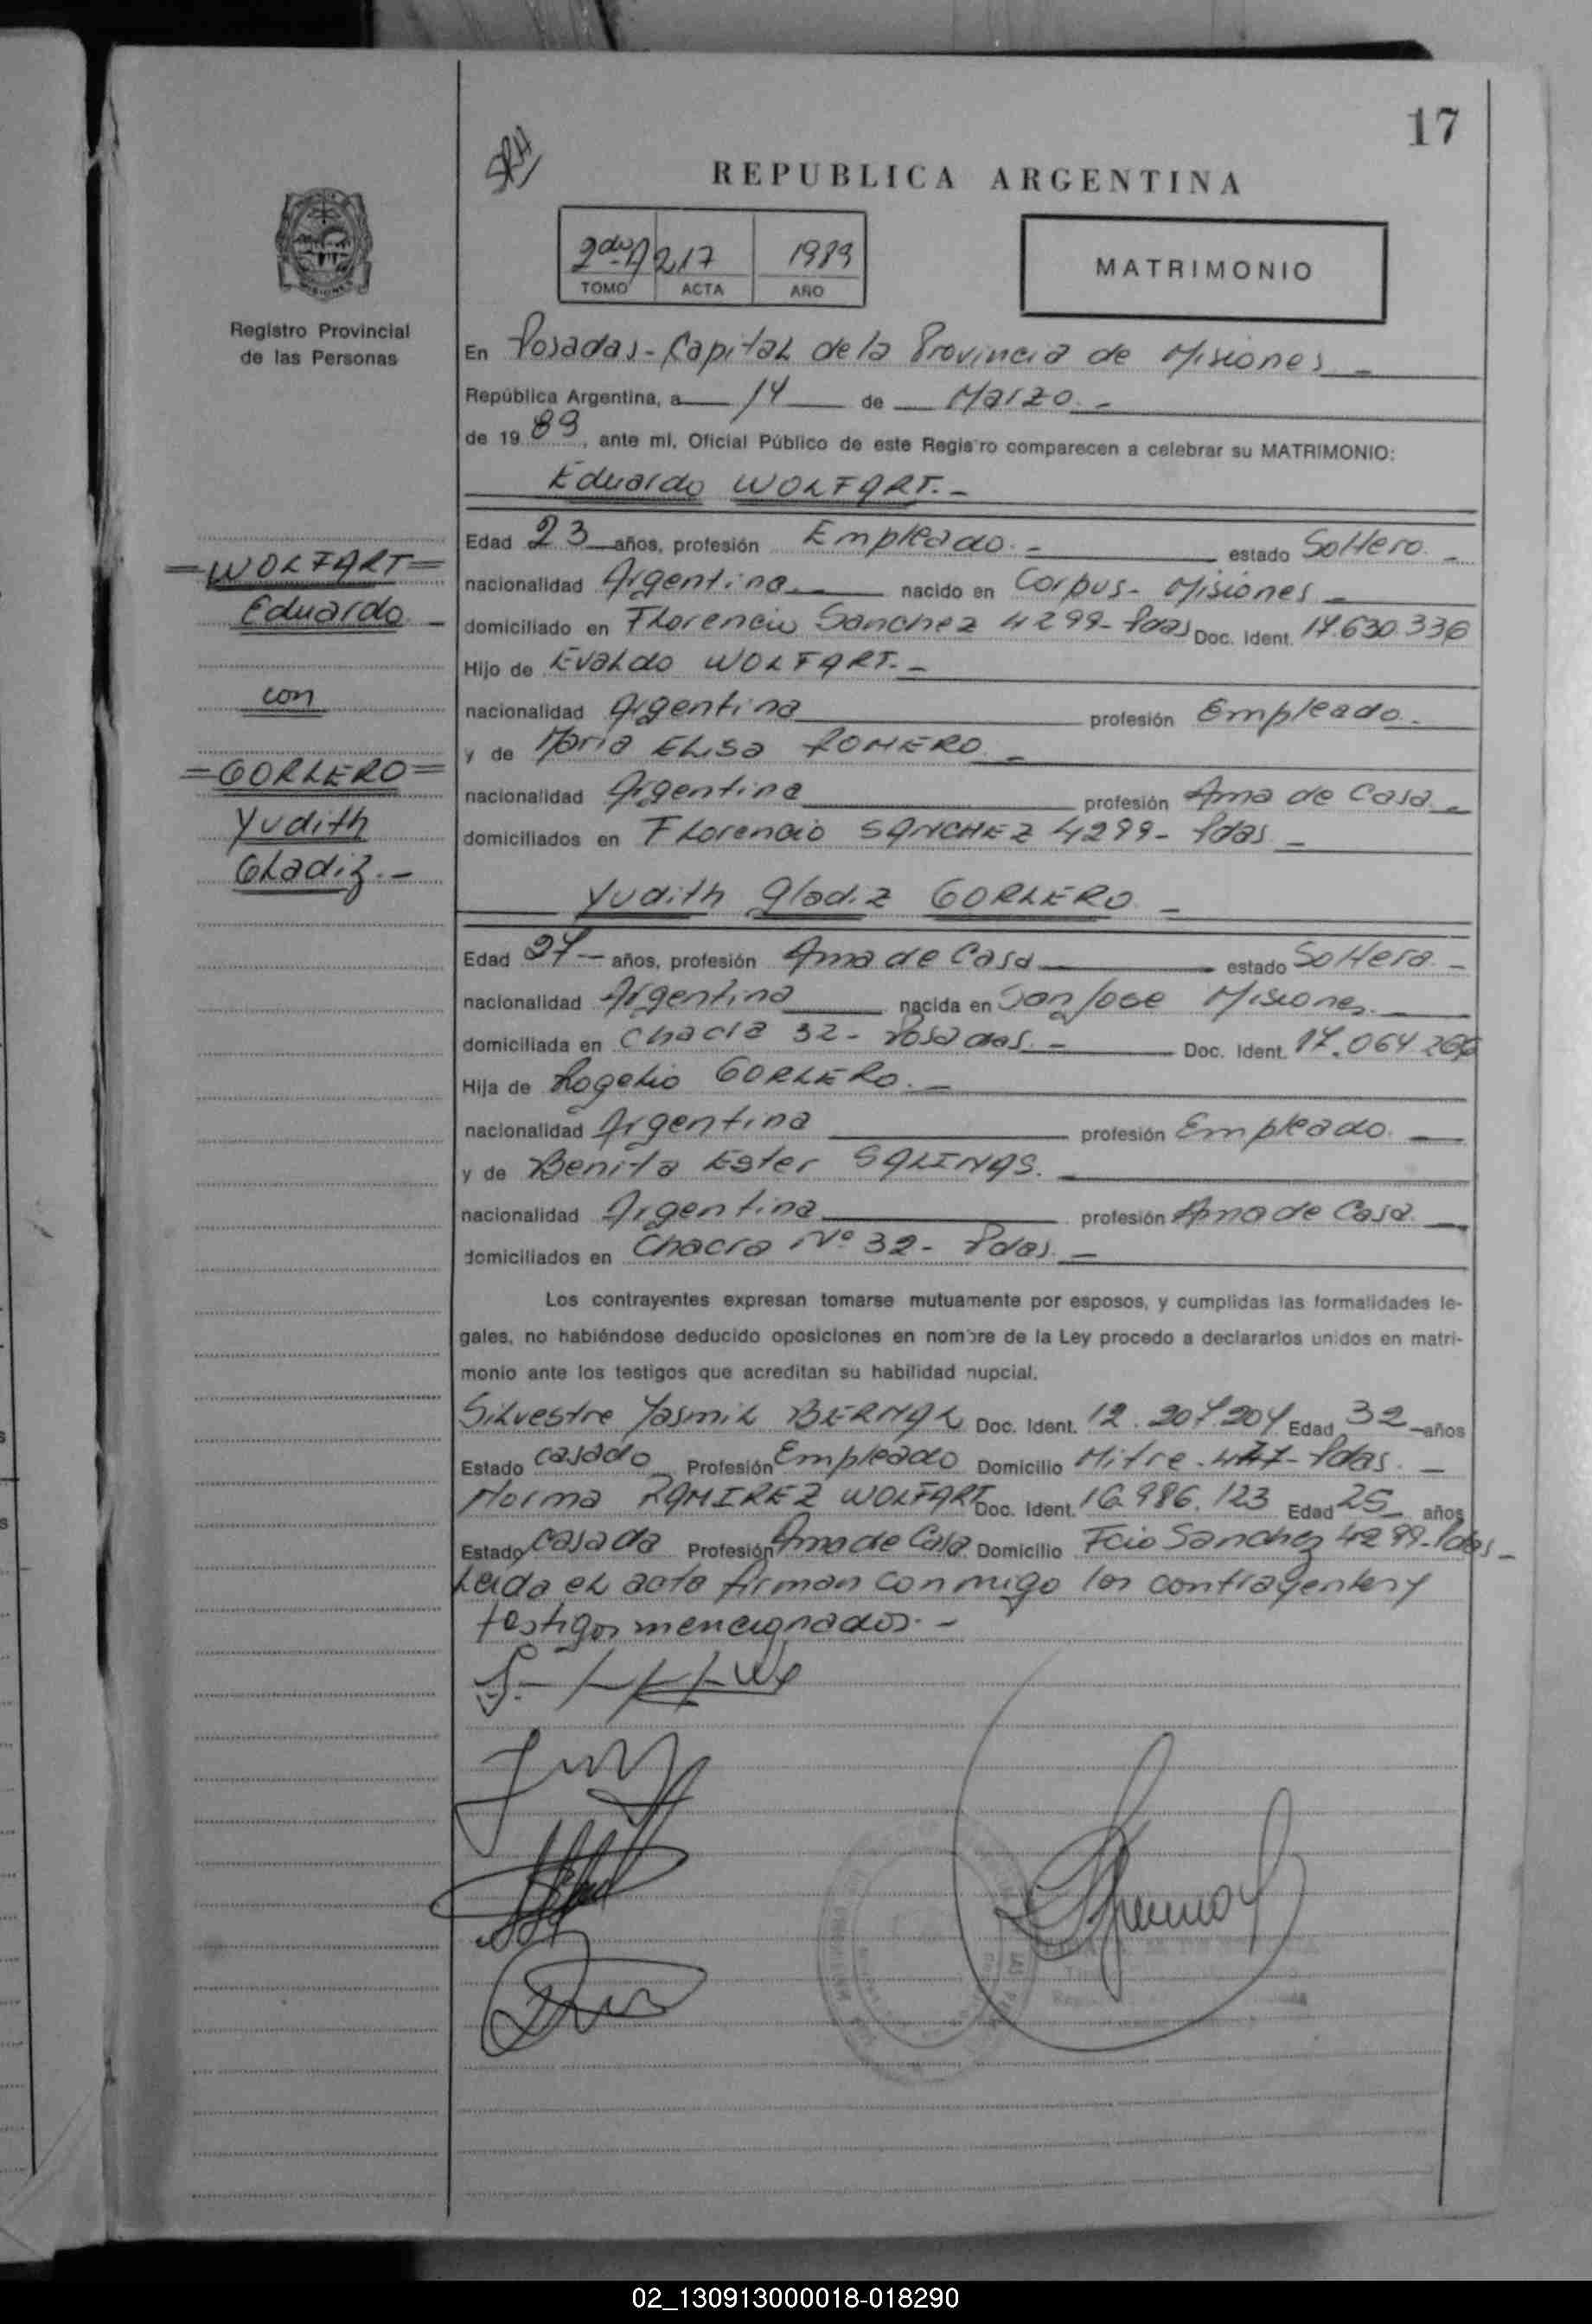 17
REPUBLICA ARGENTINA
2do A 217 1989
TOMO ACTA AÑO
MATRIMONIO
Registro Provincial
de las Personas
En Posadas - Capital de la Provincia de Misiones -
República Argentina, a 14 de Marzo -
de 19 89, ante mi, Oficial Público de este Registro comparecen a celebrar su MATRIMONIO:
Eduardo WOLFART. -
= WOLFART =
Eduardo -
con
= GORLERO =
Yudith
Gladiz. -
Edad 23 años, profesión Empleado. - estado Soltero. -
nacionalidad Argentina - nacido en Corpus - Misiones -
domiciliado en Florencio Sanchez 4299 - Pdas Doc. Ident. 17.630.336
Hijo de Evaldo WOLFART. -
nacionalidad Argentina profesión Empleado.
y de Maria Elisa ROMERO -
nacionalidad Argentina profesión Ama de Casa -
domiciliados en Florencio SANCHEZ 4299 - Pdas -
Yudith Gladiz GORLERO -
Edad años, profesión Ama de Casa estado Soltera -
nacionalidad Argentina nacida en San Jose Misiones
domiciliada en Chacra 32 - Posadas. - Doc. Ident. 17.064
Hija de Rogelio GORLERO. -
nacionalidad Argentina profesión Empleado -
y de Benita Ester SALINAS.
nacionalidad Argentina profesión Ama de Casa
domiciliados en Chacra Nº 32 - Pdas -
Los contrayentes expresan tomarse mutuamente por esposos, y cumplidas las formalidades le-
gales, no habiéndose deducido oposiciones en nombre de la Ley procedo a declararlos unidos en matri-
monio ante los testigos que acreditan su habilidad nupcial.
Silvestre Yasmil BERNAL Doc. Ident. 12.207.204 Edad 32 años
Estado casado Profesión Empleado Domicilio Mitre - Pdas. -
Norma RAMIREZ WOLFART Doc. Ident. 16.986.123 Edad 25 años
Estado Casada Profesión Ama de Casa Domicilio Fcio Sanchez 4299 - Pdas -
Leida el acta firman conmigo los contrayentes y
testigos mencionados. -
02_130913000018-018290